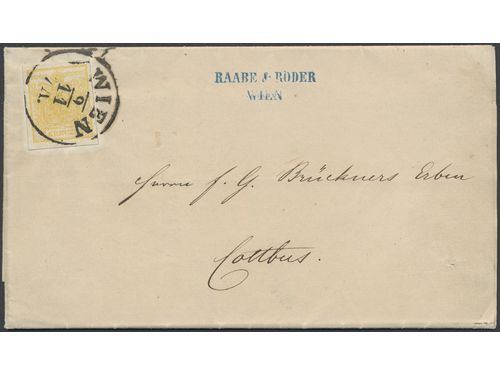 RAABE & RÖDER
WIEN
WIEN
9
11
Herrn F. G. Brückners Erben
Cottbus.